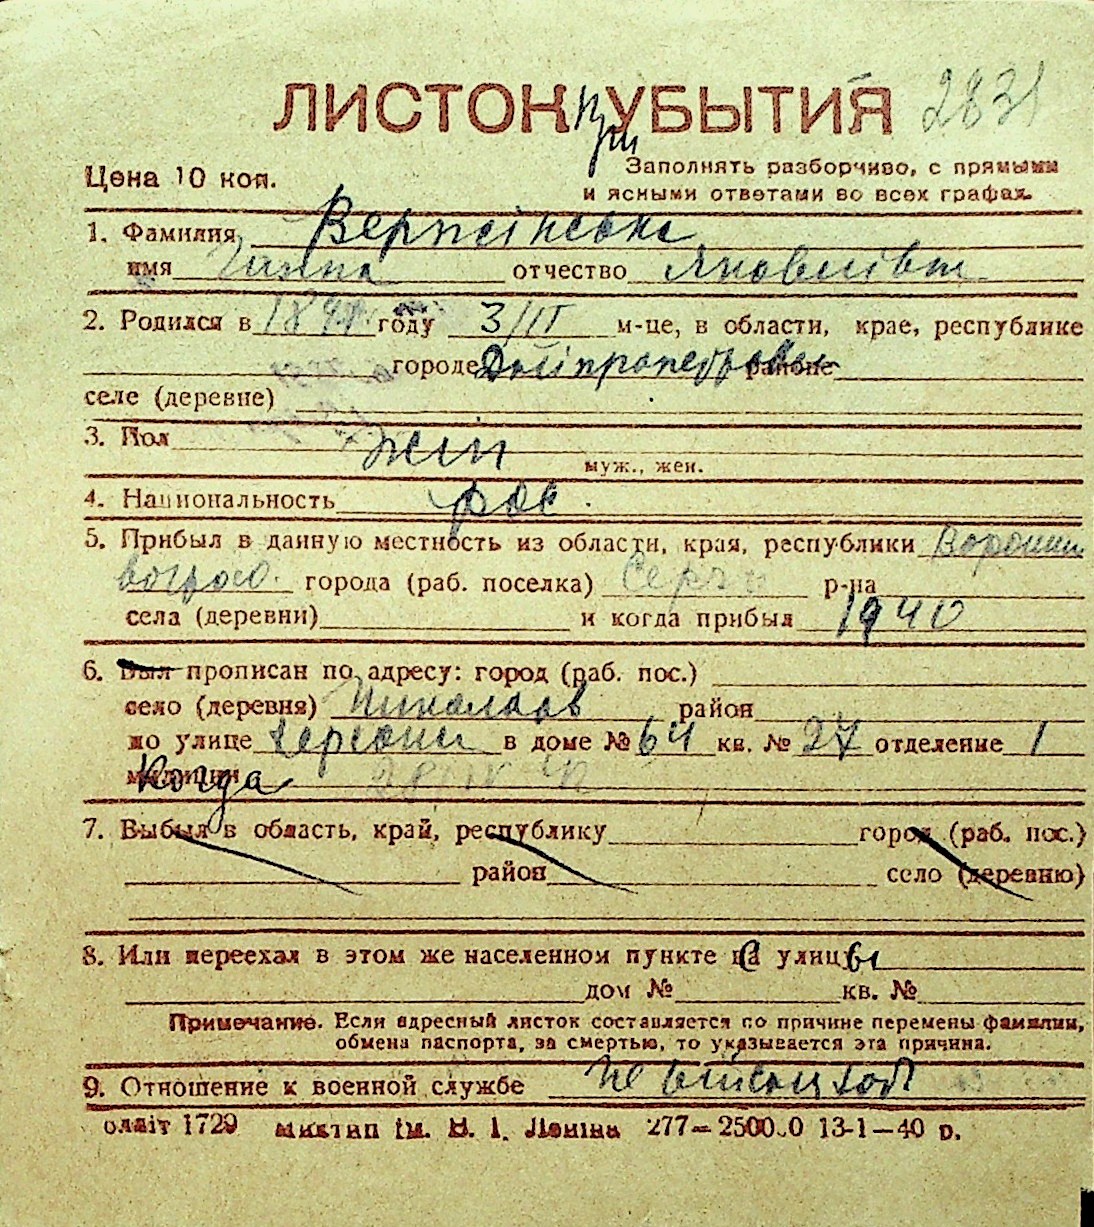 ЛИСТОК при УБЫТИЯ 2831
Цена 10 коп. Заполнять разборчиво, с прямыми
и ясными ответами во всех графах.
1. Фамилия
имя Ганна отчество Яковлівна
2. Родился в году 3/II м-це, в области, крае, республике
городе Дніпропетровськ районе
селе (деревне)
3. Пол жін
муж., жен.
4. Национальность рос.
5. Прибыл в данную местность из области, края, республики Вороши
вогр. о. города (раб. поселка) р-на
села (деревни) и когда прибыл 1940
6. Был прописан по адресу: город (раб. пос.)
село (деревня) Миколаїв район
по улице Херсонськ в доме № 64 кв. № 27 отделение 1
милиции Когда
7. Выбыл в область, край, республику город (раб. пос.)
район село (деревню)
8. Или переехал в этом же населенном пункте с улицы
дом № кв. №
Примечание. Если адресный листок составляется по причине перемены фамилии,
обмена паспорта, за смертью, то указывается эта причина.
9. Отношение к военной службе не військовозоб
олліт 1729 Миктип ім. В. І. Леніна 277—250000 13-1—40 р.